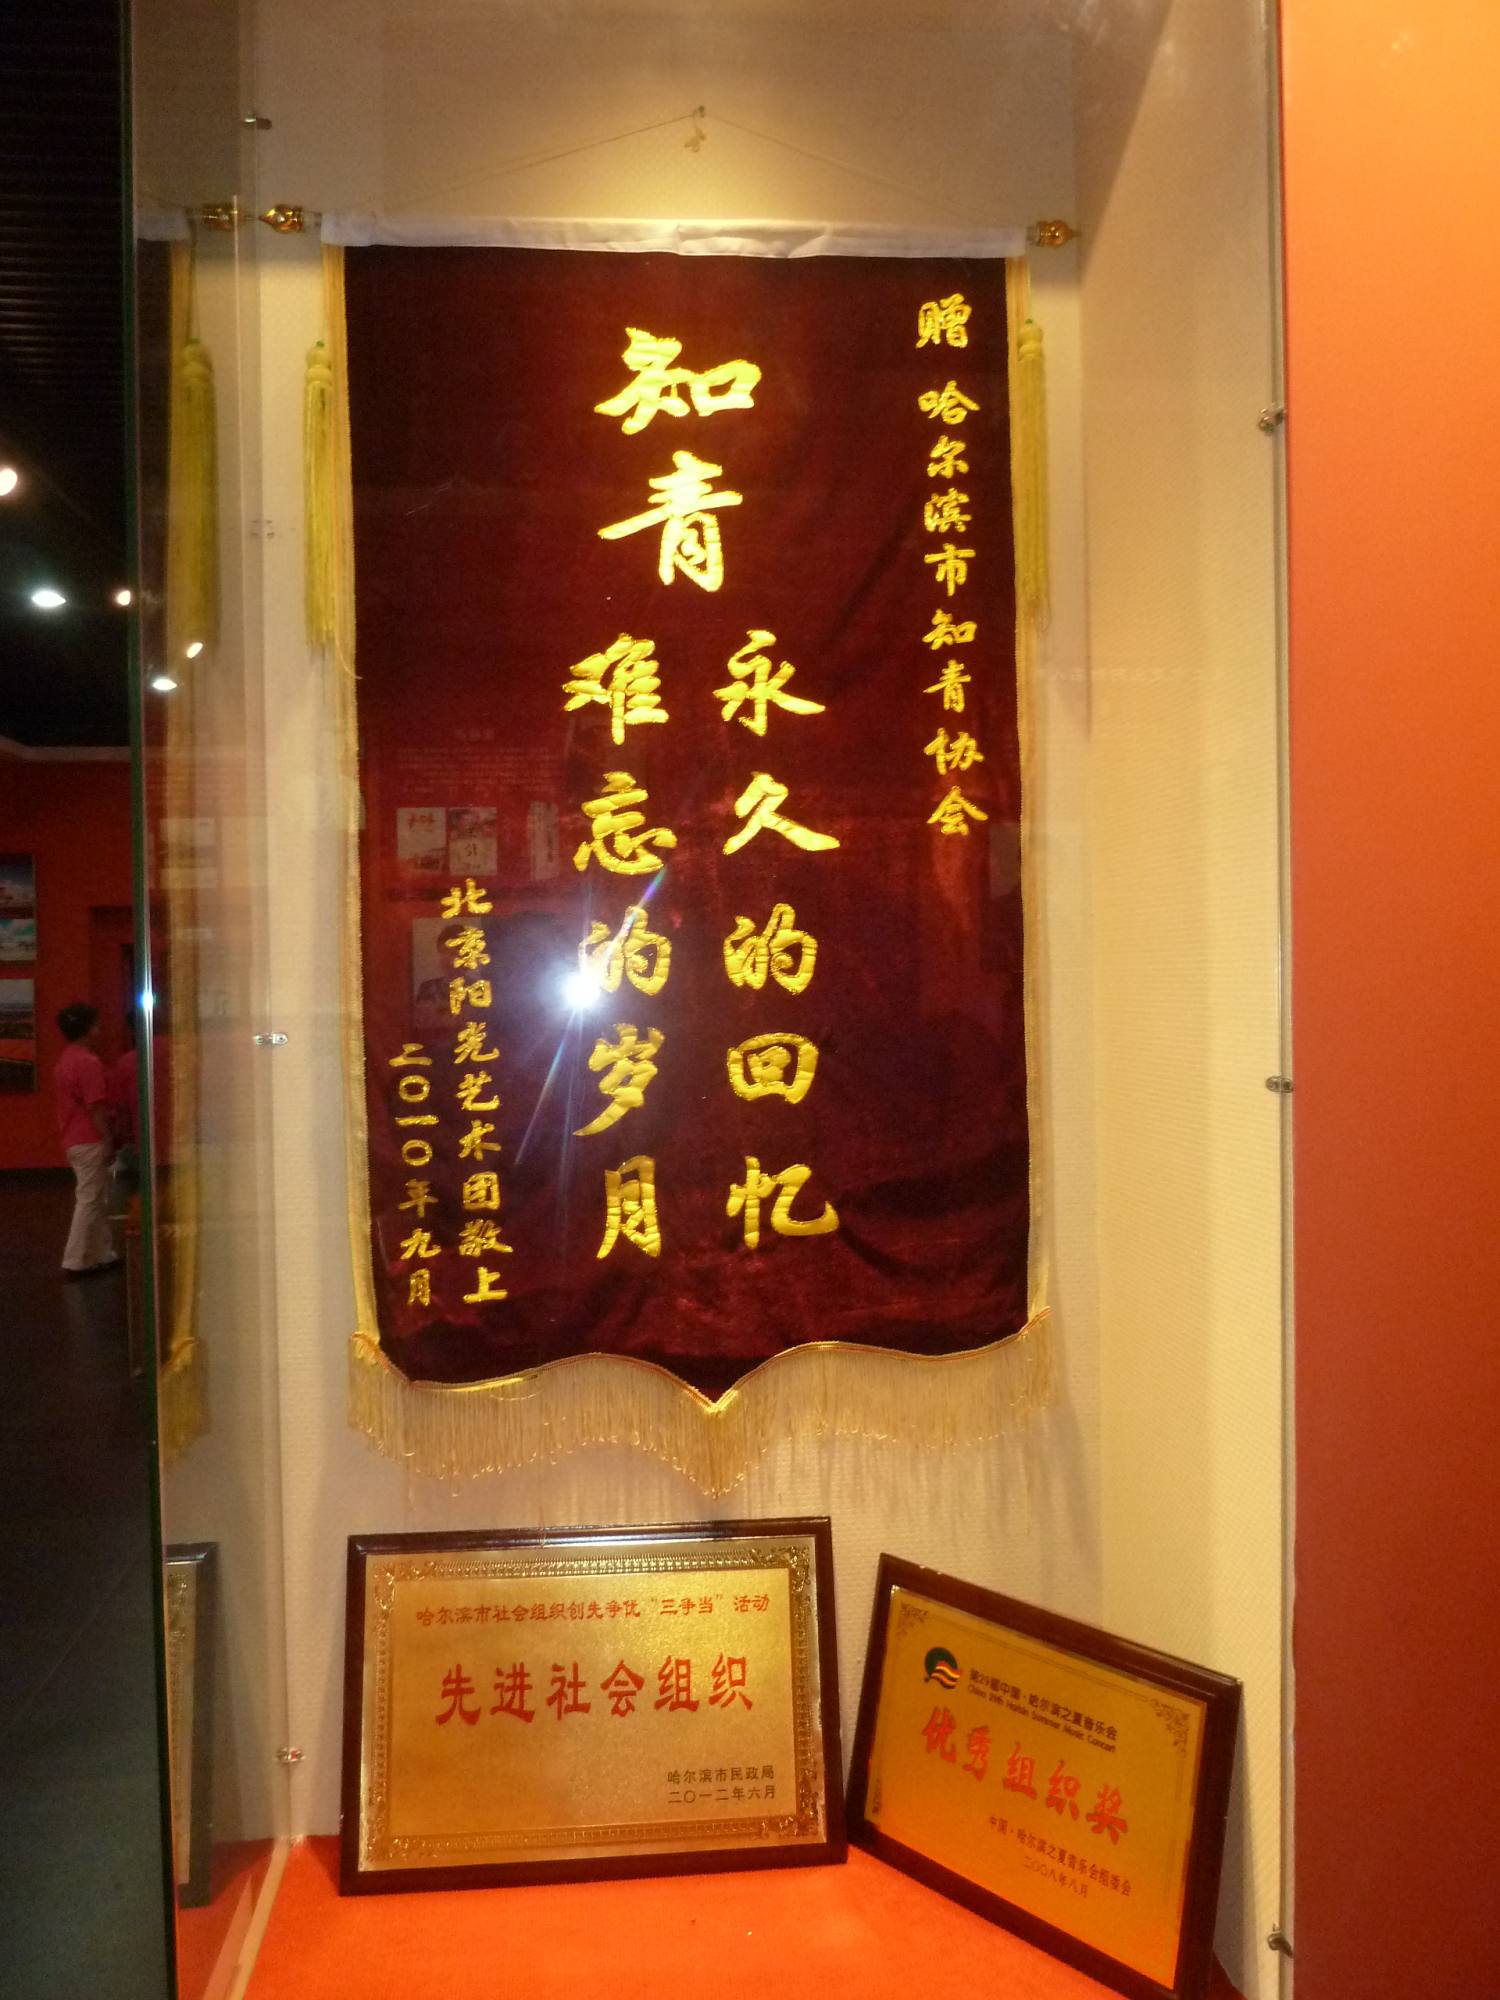 赠 哈尔滨市知青协会
知青
永久的回忆
难忘的岁月
北京阳光艺术团敬上
二〇一〇年九月
哈尔滨市社会组织创先争优“三争当”活动
先进社会组织
哈尔滨市民政局
二〇一二年六月
第29届中国·哈尔滨之夏音乐会
China 29th Harbin Summer Music Concert
优秀组织奖
中国·哈尔滨之夏音乐会组委会
二〇〇八年八月